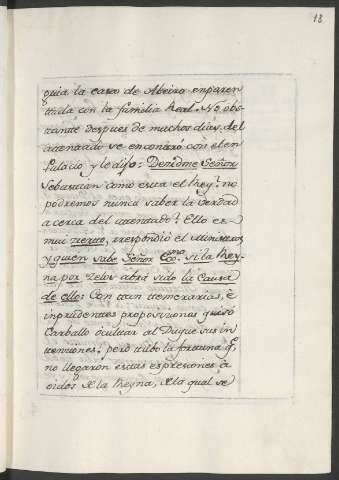 18
guia la casa de Abeiro enparen
ttada con la familia Real. No obs
tantte despues de muchos dias del
attenttado se encontró con el en
Palacio y le dijo: Decidme Señor
Sebastian como esta el Rey? no
podremos nunca saber la Verdad
a cerca del attenttado? Ello es
mui cierto, respondió el Ministro
y quien sabe Señor Exmo. si la Rey-
na por Zelos abrá sido la Causa
de ello? Con ttan ttemerarias, è
inprudentes proposiciones quiso
Carballo ocultar al Duque sus in
ttenciones; pero tubo la fortuna q.
no llegaron estas expresiones à
oidos de la Reyna, de la qual se